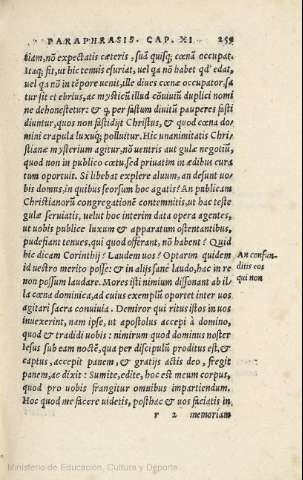 PARAPHRASIS. CAP. XI. 259
tiam, nō expectatis cæteris, suā quisq; cœnā occupat.
Itaq; fit, ut hic tenuis esuriat, uel qa nō habet qd' edat,
uel qa nō in tēpore uenit, ille diues cœnæ occupator sa
tur sit et ebrius, ac mysticū illud cōuiuiū duplici nomi
ne dehonestetur: & q, per fastum diuitū pauperes fasti
diuntur, quos non fastidijt Christus, & quod cœna do
mini crapula luxuq; polluitur. Hic unanimitatis Chri
stianæ mysterium agitur, nō uentris aut gulæ negotiū,
quod non in publico cœtu, sed priuatim in ædibus cura
tum oportuit. Si libebat explere aluum, an desunt uo
bis domus, in quibus seorsum hoc agatis? An publicam
Christianorū congregationē contemnitis, ut hac teste
gulæ seruiatis, uelut hoc interim data opera agentes,
ut uobis publice luxum & apparatum ostentantibus,
pudefiant tenues, qui quod offerant, nō habent? Quid
hic dicam Corinthij? Laudem uos? Optarim quidem
id uestro merito posse: & in alijs sane laudo, hac in re
non possum laudare. Mores isti nimium dissonant ab il
la cœna dominica, ad cuius exemplū oportet inter uos
agitari sacra conuiuia. Demiror qui ritus istos in uos
inuexerint, nam ipse, ut apostolus accepi à domino,
quod & tradidi uobis: nimirum quod dominus noster
Iesus sub eam noctē, qua per discipulū proditus est, &
captus, accepit panem, & gratijs actis deo, fregit
panem, ac dixit: Sumite, edite, hoc est meum corpus,
quod pro uobis frangitur omnibus impartiendum.
Hoc quod me facere uidetis, posthac & uos faciatis in
r 2 memoriam
An confun-
ditis eos
qui non
Ministerio de Educación, Cultura y Deporte